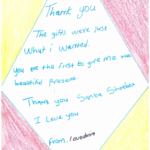 Thank you
The gifts were just
What i wanted.
you are the first to give me the
beautiful presents
Thank you Santa
I Love you
From,